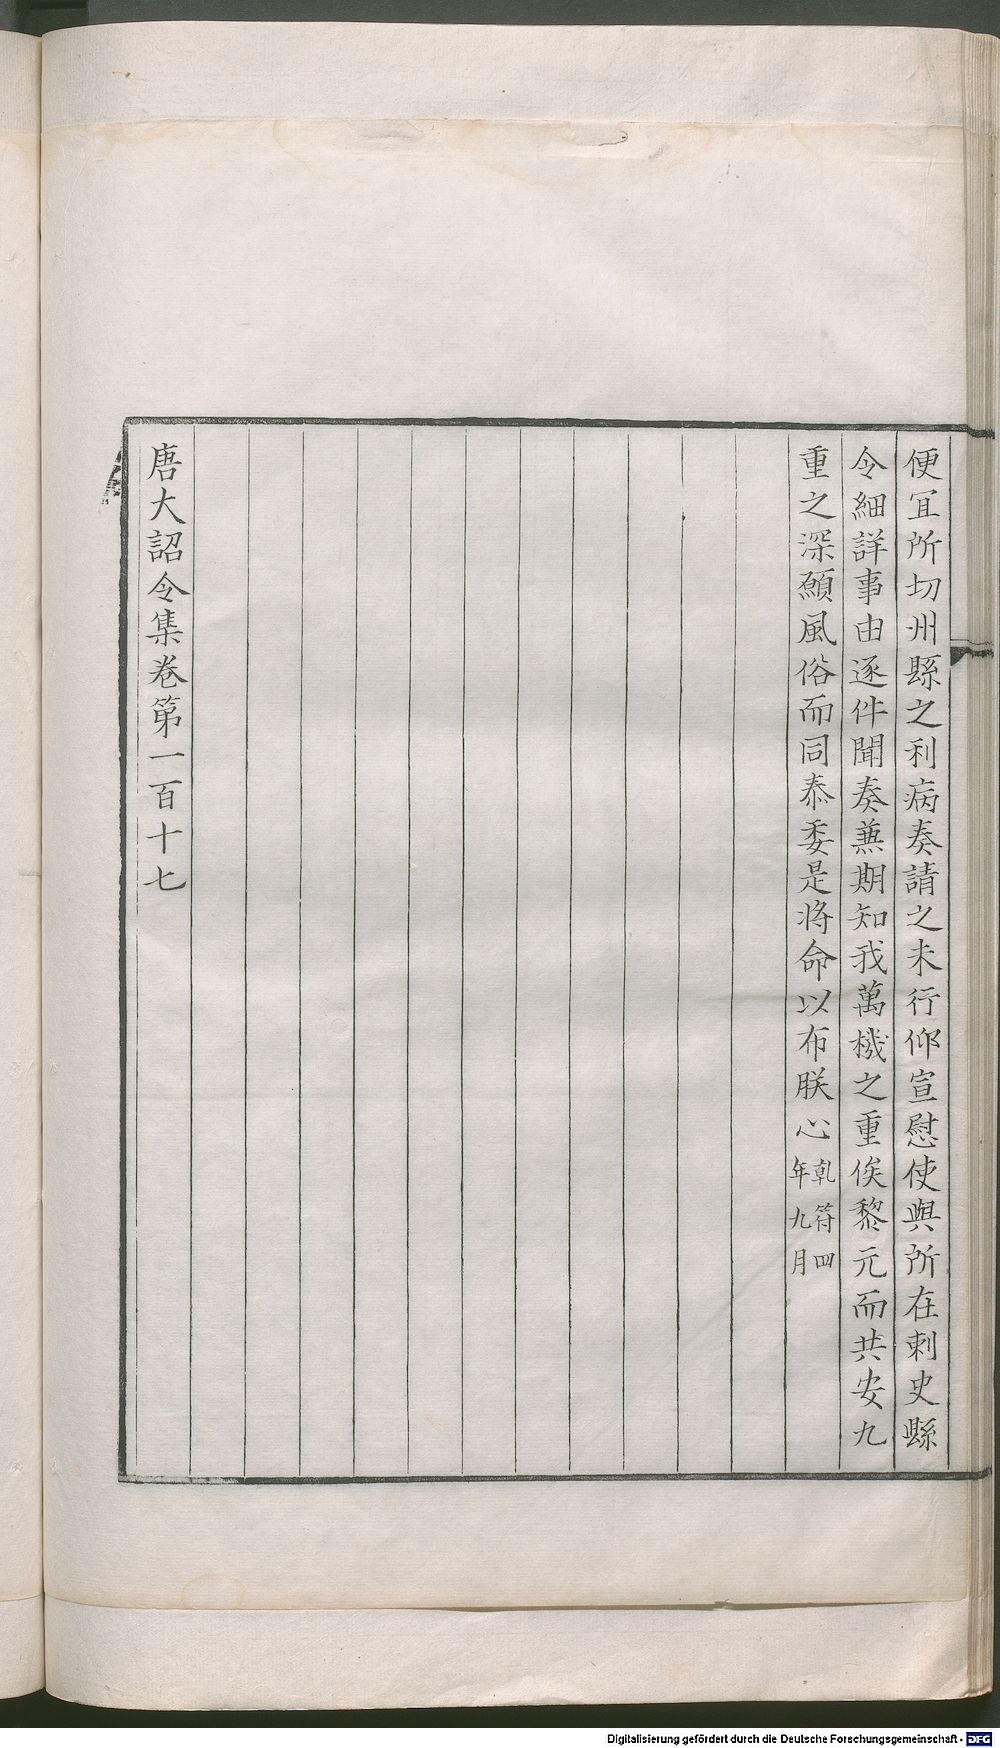 便冝所切州縣之利病奏請之未行仰宣慰使與所在刺史縣
令細詳事由逐件聞奏兼期知我萬機之重俟黎元而共安九
重之深願風俗而同泰委是將命以布朕心乾符四
年九月
唐大詔令集卷第一百十七
Digitalisierung gefördert durch die Deutsche Forschungsgemeinschaft - DFG